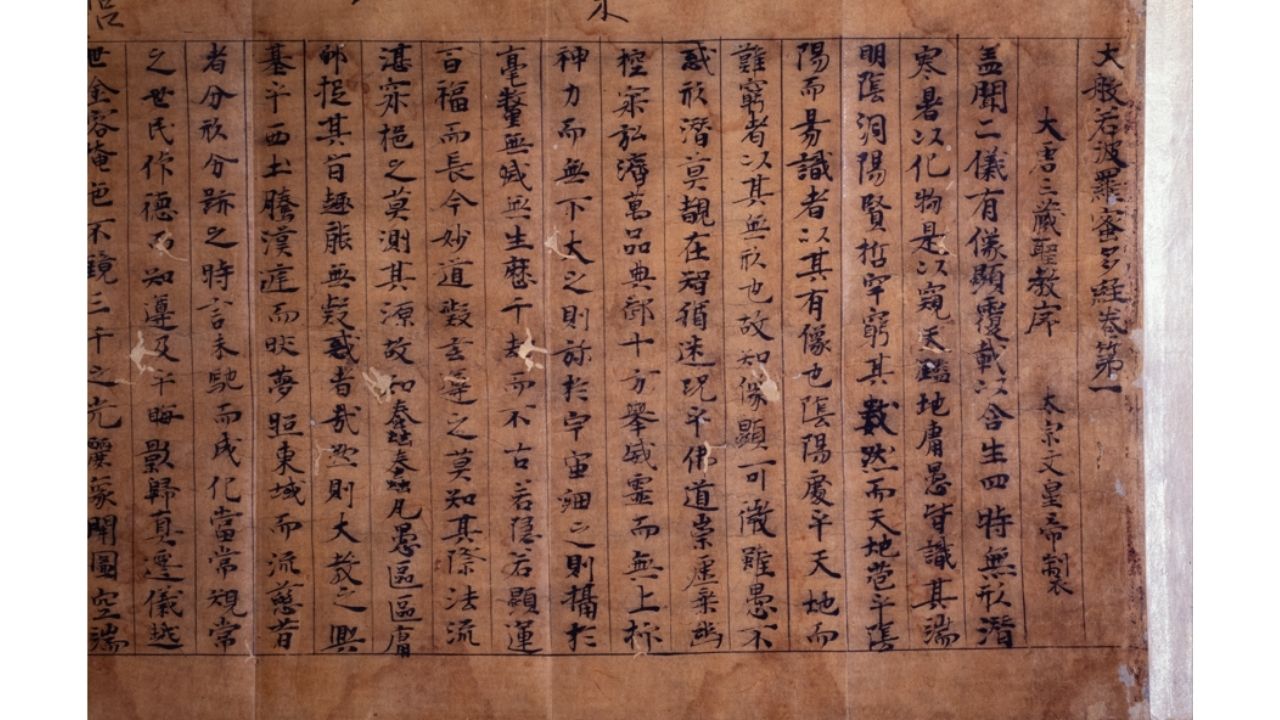 大般若波羅蜜多經卷第一
大唐三藏聖教序 太宗文皇帝製
盖聞二儀有像顯覆載以含生四時無形潛
寒暑以化物是以窺天鑑地庸愚皆識其端
明陰洞陽賢哲罕窮其數然而天地苞乎陰
陽而易識者以其有像也陰陽處乎天地而
難窮者以其無形也故知像顯可徵雖愚不
惑形潛莫覩在智猶迷況乎佛道崇虛乘幽
控寂弘濟萬品典御十方舉威靈而無上抑
神力而無下大之則弥於宇宙細之則攝於
毫釐無滅無生歷千劫而不古若隱若顯運
百福而長今妙道凝玄遵之莫知其際法流
湛寂挹之莫測其源故知蠢蠢凡愚區區庸
鄙投其旨趣能無疑惑者哉然則大教之興
基乎西土騰漢庭而皎夢照東域而流慈昔
者分形分跡之時言未馳而成化當常現常
之世民作德而知遵及乎晦影歸真遷儀越
世金容掩色不鏡三千之光麗象開圖空端